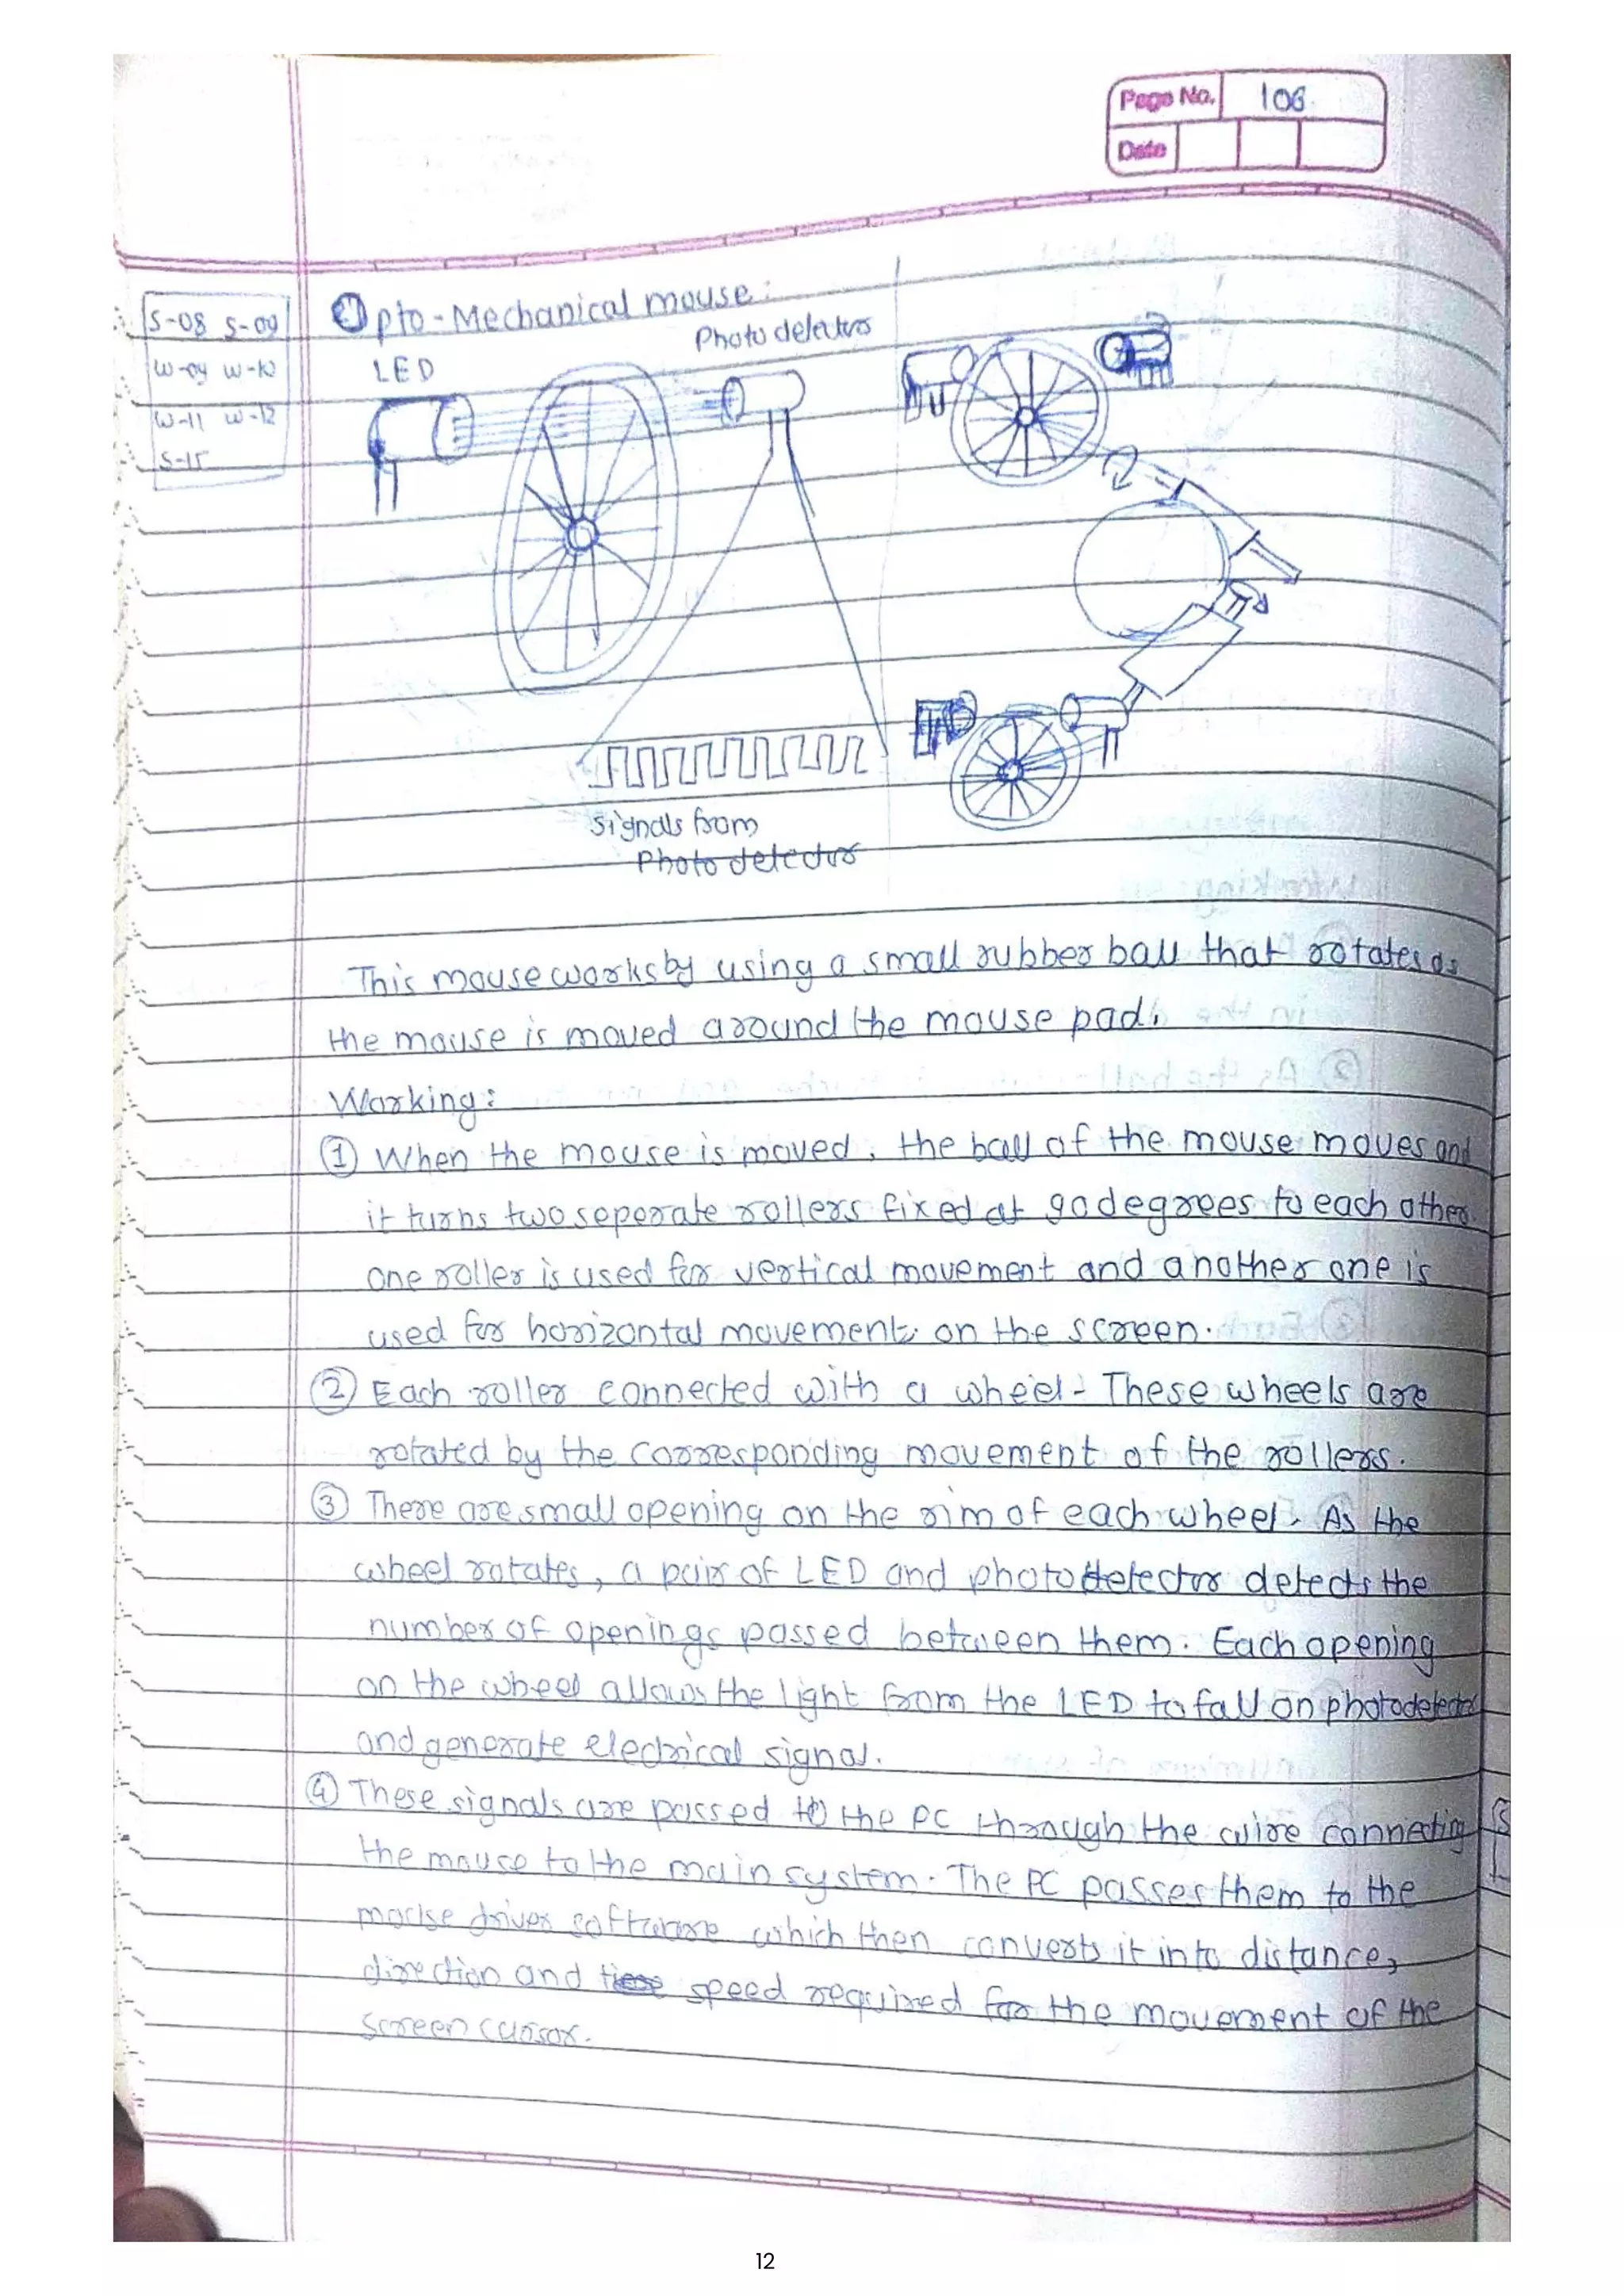 Page No. 106
Date
S-08 S-09
W-09 W-10
W-11 W-12
S-15
Opto-Mechanical mouse:
LED
Photo detectors
Signals from
Photo detector
This mouse works by using a small rubber ball that rotates as
the mouse is moved around the mouse pad.
Working:
① When the mouse is moved, the ball of the mouse moves and
it turns two seperate rollers fixed at 90 degrees to each other
one roller is used for vertical movement and another one is
used for horizontal movement on the screen.
② Each roller connected with a wheel - These wheels are
rotated by the corresponding movement of the rollers.
③ There are small opening on the rim of each wheel. As the
wheel rotates, a pair of LED and photodetector detects the
number of openings passed between them. Each opening
on the wheel allows the light from the LED to fall on photodetector
and generate electrical signal.
④ These signals are passed to the PC through the wire connecting
the mouse to the main system. The PC passes them to the
mouse driver software which then converts it into distance,
direction and speed required for the movement of the
screen cursor.
12